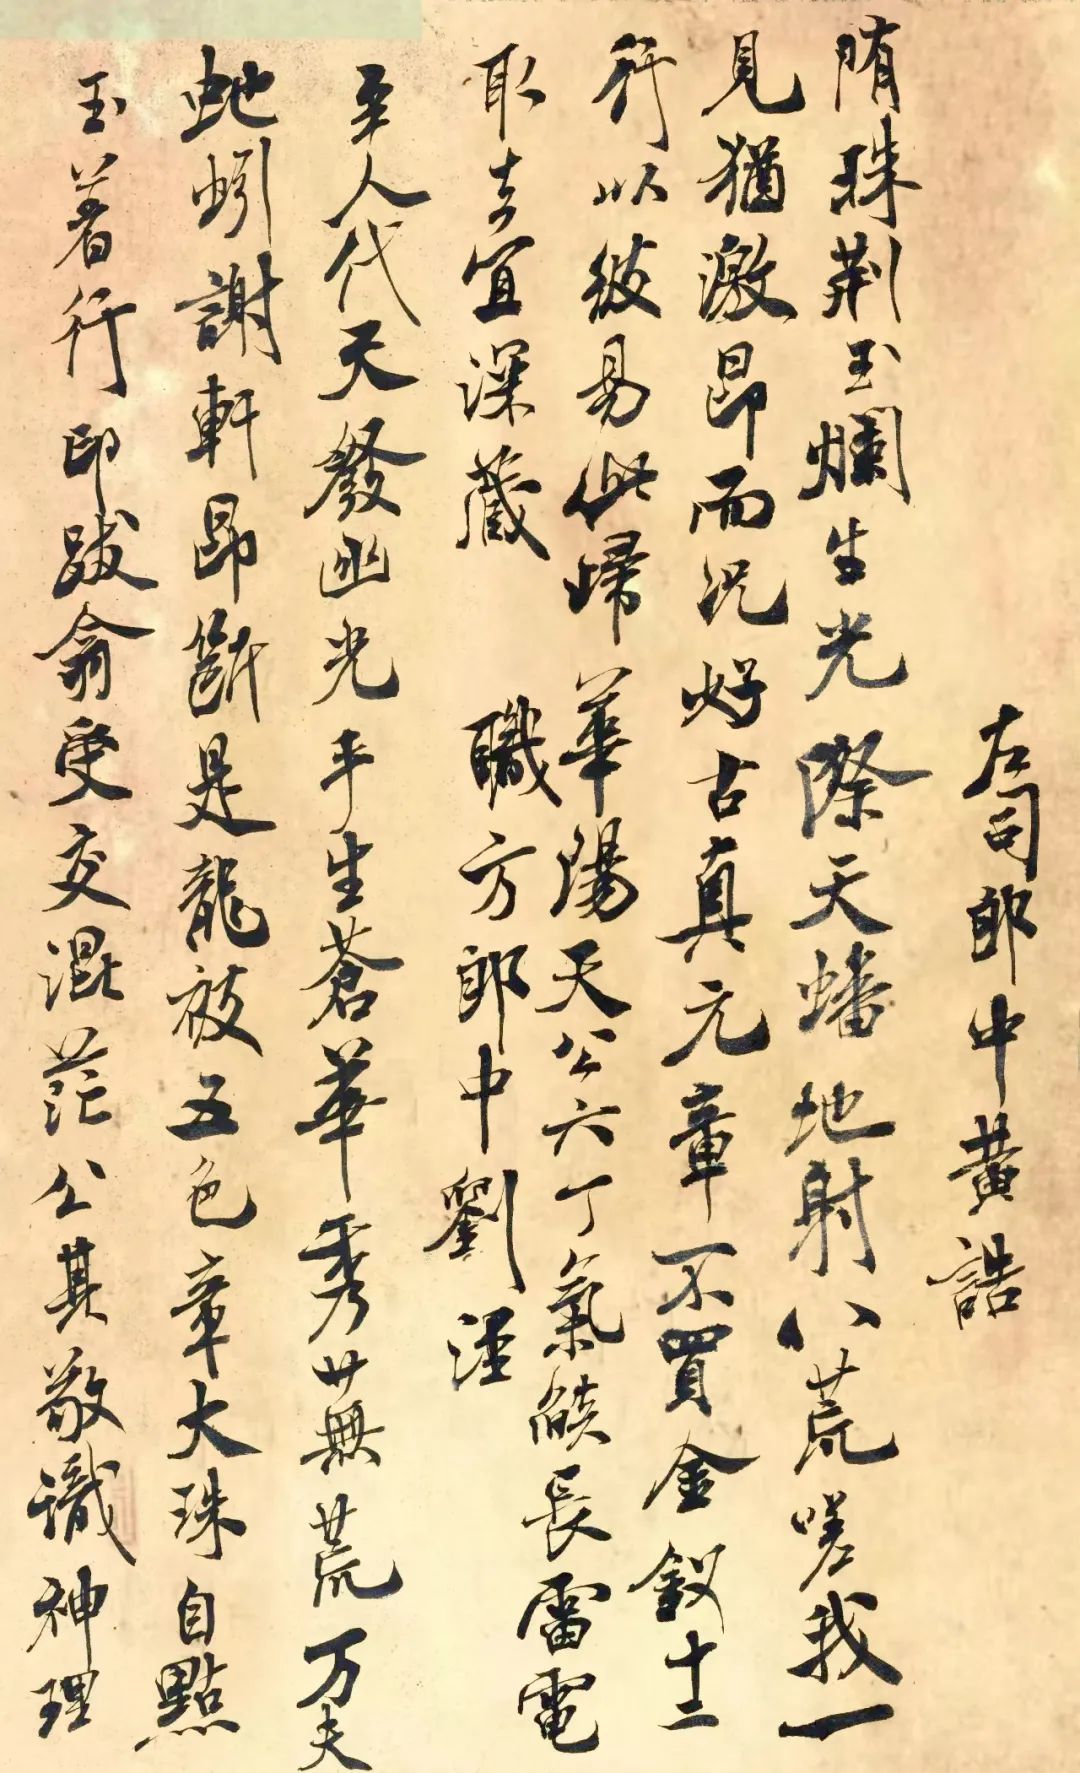 左司郎中黄誥
隋珠荆玉爛生光際天蟠地射八荒嗟我一
見猶激昂而況好古真元章不買金釵十二
行以彼易此歸華陽天公六丁氣燄長雷電
取去宜深藏 職方郎中劉涇
至人代天發幽光平生蒼華秀蕪荒万夫
虵蚓謝軒昂斷是龍被五色章大珠自點
玉著行印跋翕受交混茫公其敬識神理